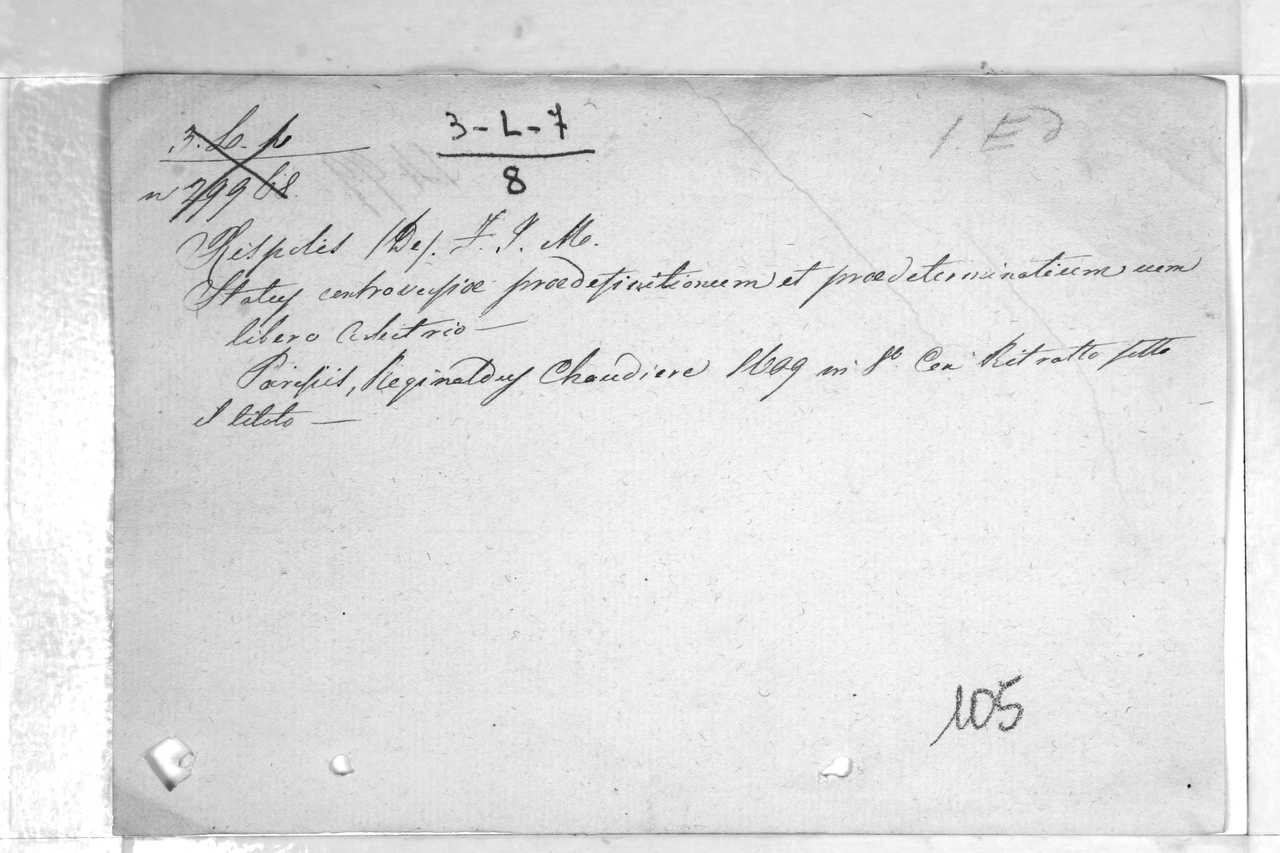 3-L-7
8
1. Ed
3. L.
n 799
Rispolis (De). F. J. M.
Status controversiæ prædefinitionum et prædeterminationum cum
libero arbitrio —
Parisiis, Reginaldus Chaudiere 1609 in 8º Con Ritratto sotto
il titolo —
105